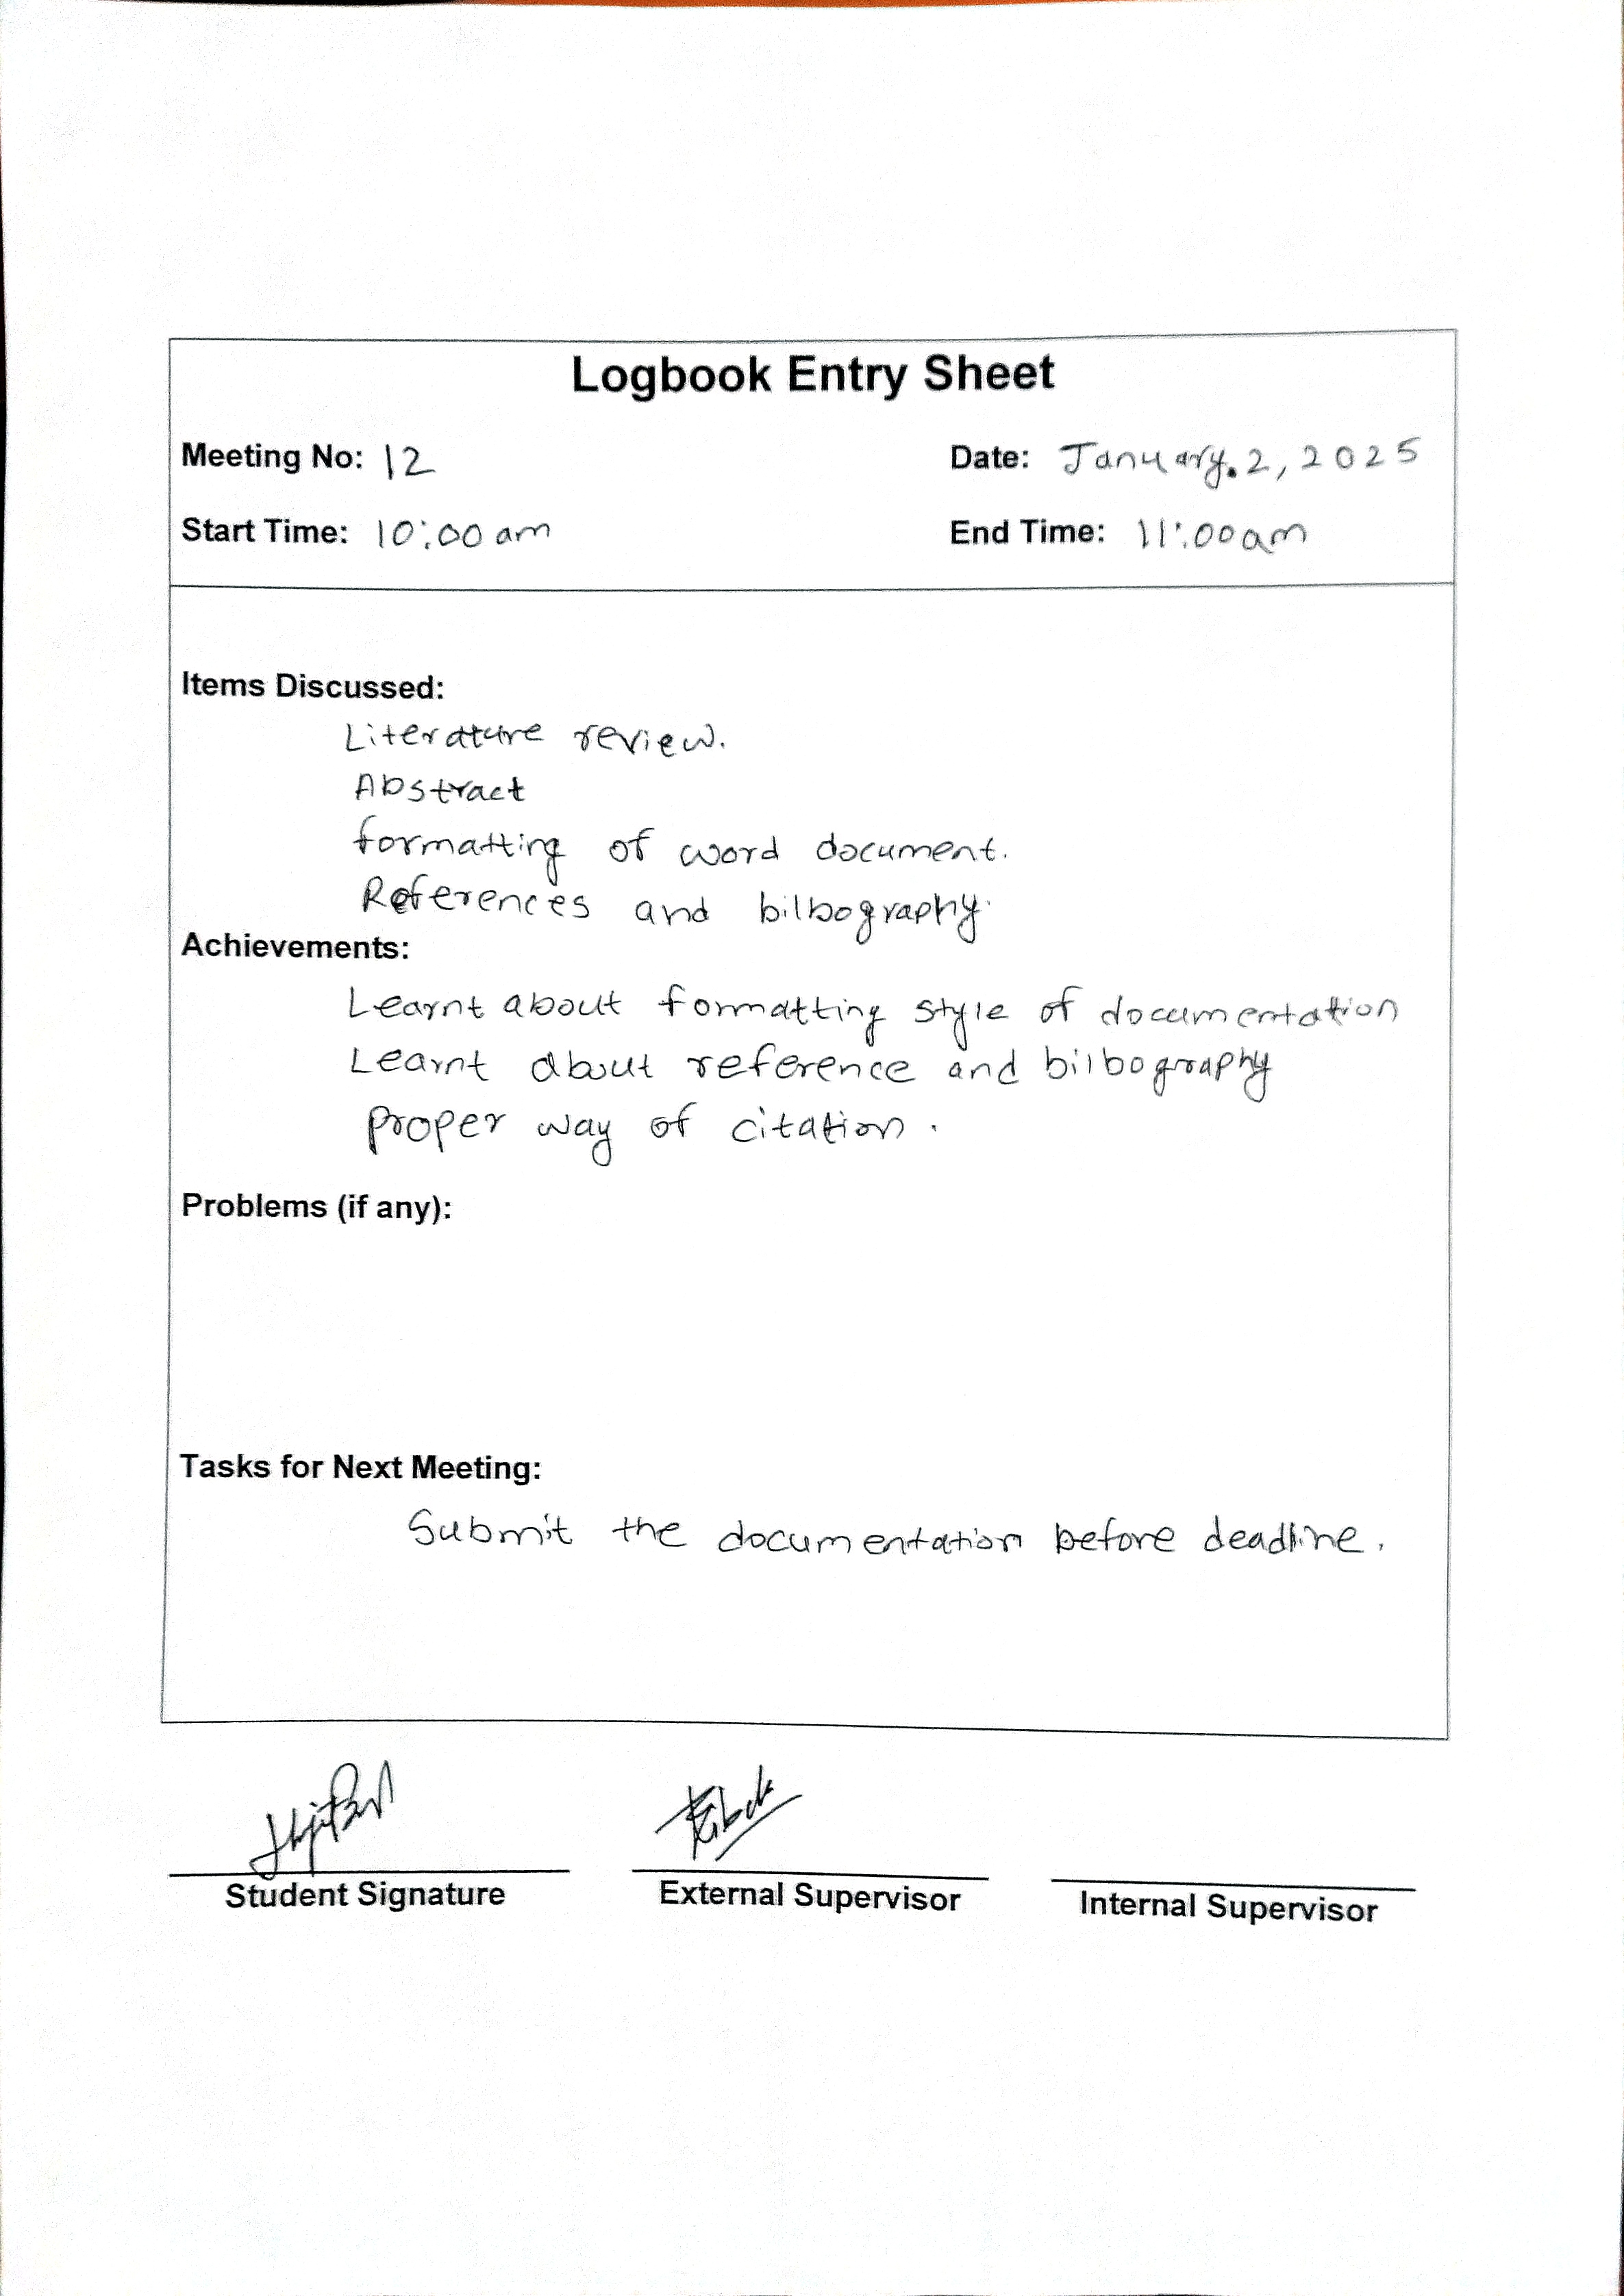 Logbook Entry Sheet
Meeting No: 12 Date: January. 2, 2025
Start Time: 10:00 am End Time: 11:00 am
Items Discussed:
Literature review.
Abstract
formatting of word document.
References and bilbography.
Achievements:
Learnt about formatting style of documentation
Learnt about reference and bilbography
proper way of citation.
Problems (if any):
Tasks for Next Meeting:
Submit the documentation before deadline.
Student Signature External Supervisor Internal Supervisor